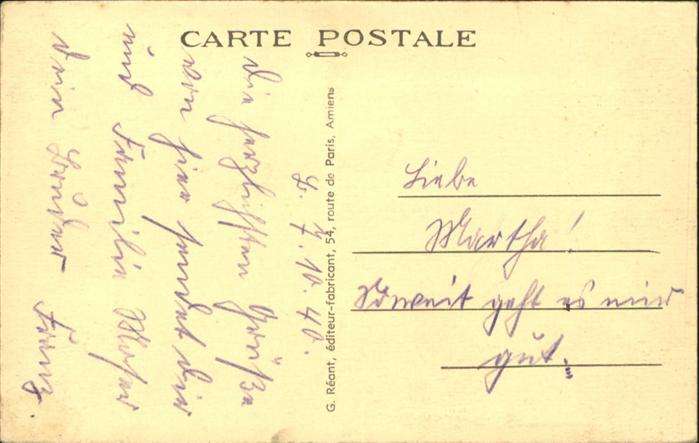 CARTE POSTALE
G. Réant, éditeur-fabricant, 54, route de Paris, Amiens
Liebe
Martha!
Soweit geht es mir
gut.
7. 10. 40.
Die herzlichsten Grüße
von hier sendet Dir
und Familie
Dein Bruder Franz.